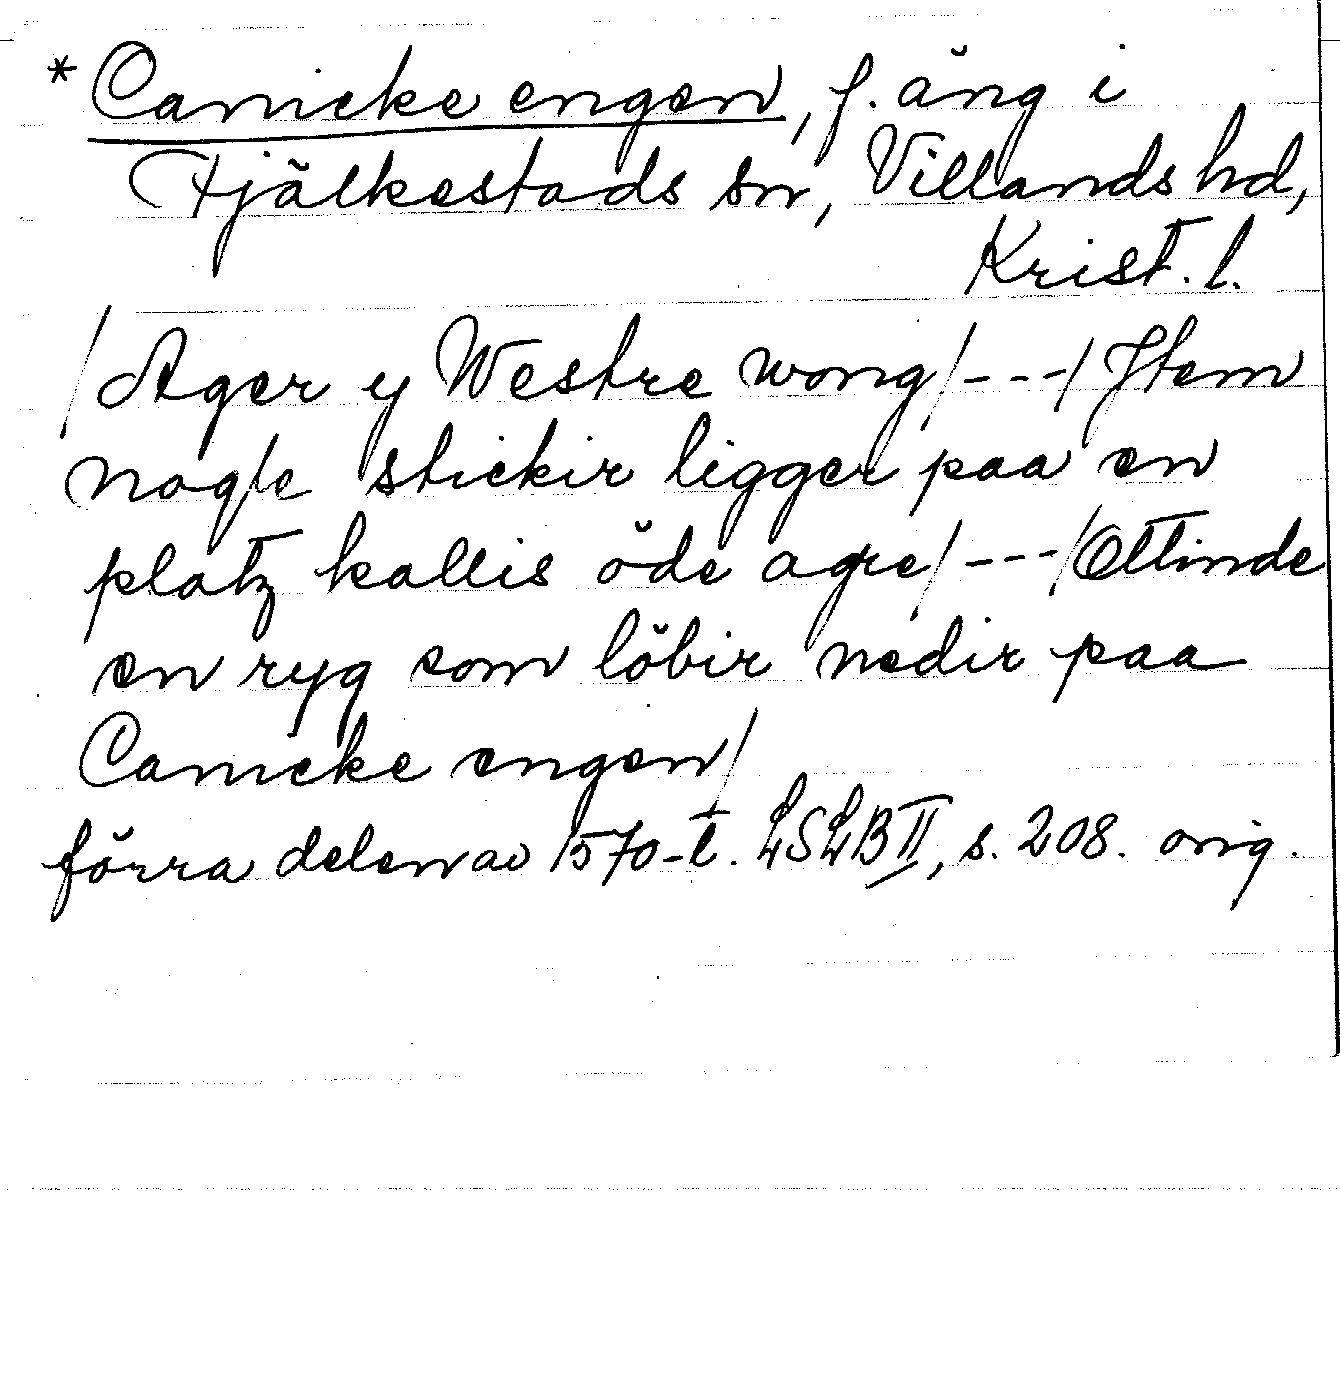 * Canicke engen, f. äng i
Fjälkestads sn, Villands hd,
Krist. l.
/Ager y Westre wong/---/Item
nogle stickir ligger paa en
platz kallis öde agre/---/Ottinde
en ryg som löbir nedir paa
Canicke engen/
förra delen av 1570-t. LSLB II, s. 208. orig.